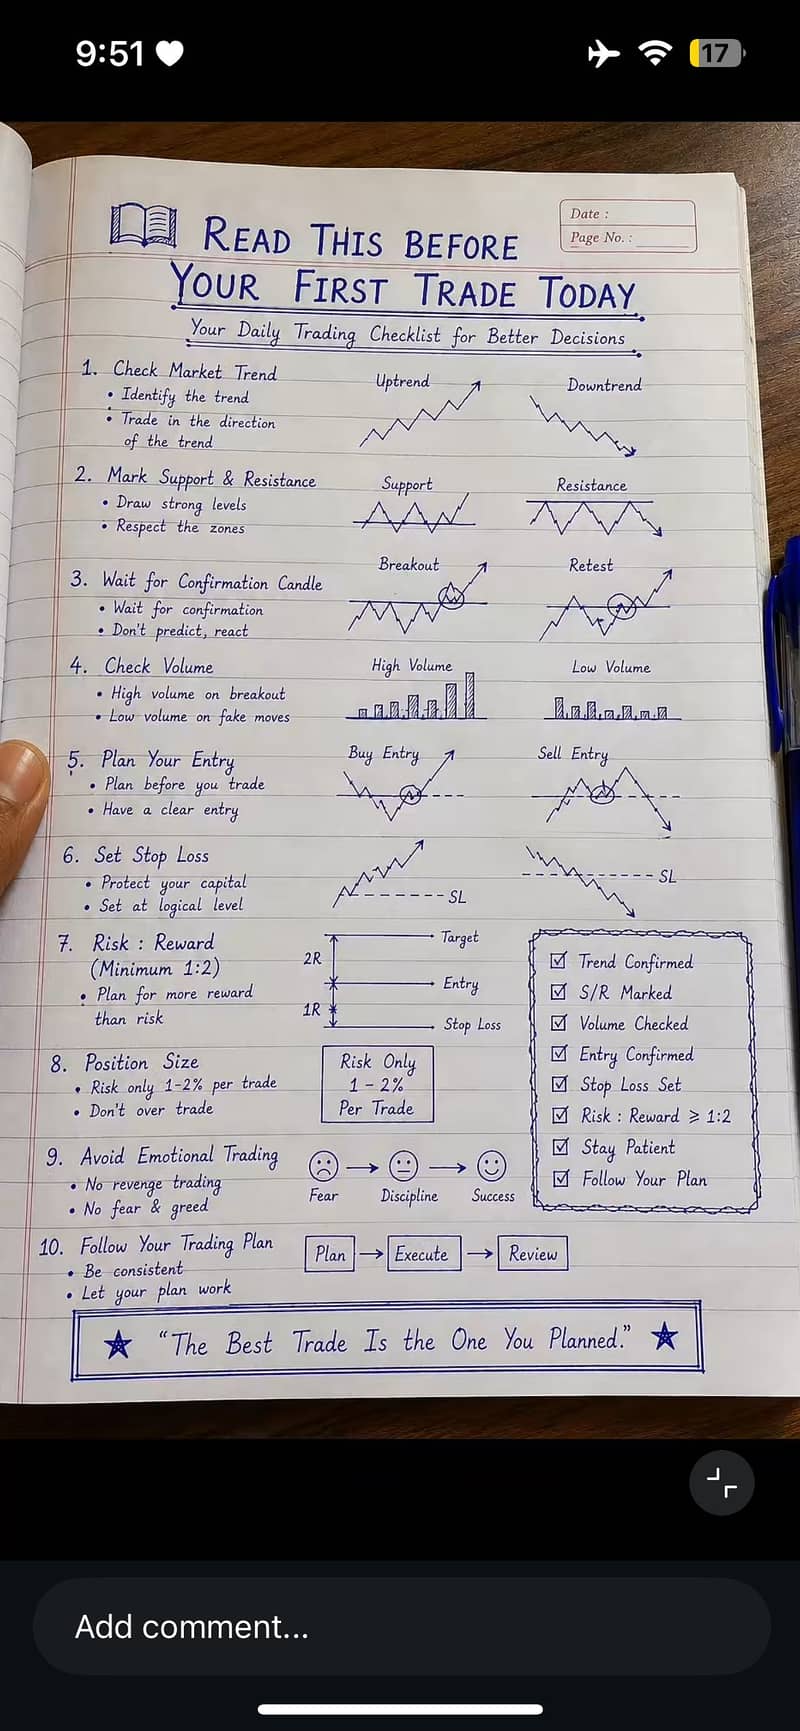 9:51
17
Date :
Page No. :
READ THIS BEFORE
YOUR FIRST TRADE TODAY
Your Daily Trading Checklist for Better Decisions
1. Check Market Trend
• Identify the trend
• Trade in the direction
of the trend
Uptrend
Downtrend
2. Mark Support & Resistance
• Draw strong levels
• Respect the zones
Support
Resistance
3. Wait for Confirmation Candle
• Wait for confirmation
• Don't predict, react
Breakout
Retest
4. Check Volume
• High volume on breakout
• Low volume on fake moves
High Volume
Low Volume
5. Plan Your Entry
• Plan before you trade
• Have a clear entry
Buy Entry
Sell Entry
6. Set Stop Loss
• Protect your capital
• Set at logical level
SL
SL
7. Risk : Reward
(Minimum 1:2)
• Plan for more reward
than risk
2R
1R
Target
Entry
Stop Loss
8. Position Size
• Risk only 1-2% per trade
• Don't over trade
Risk Only
1 - 2%
Per Trade
9. Avoid Emotional Trading
• No revenge trading
• No fear & greed
Fear
Discipline
Success
☑ Trend Confirmed
☑ S/R Marked
☑ Volume Checked
☑ Entry Confirmed
☑ Stop Loss Set
☑ Risk : Reward ⩾ 1:2
☑ Stay Patient
☑ Follow Your Plan
10. Follow Your Trading Plan
• Be consistent
• Let your plan work
Plan → Execute → Review
★ "The Best Trade Is the One You Planned." ★
Add comment...